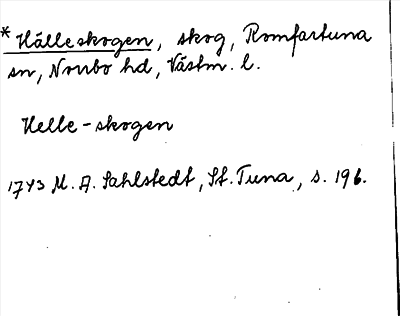 * Hälleskogen, skog, Romfartuna
sn, Norrbo hd, Västm. l.
Helle-skogen
1743 M. A. Sahlstedt, St. Tuna, s. 196.